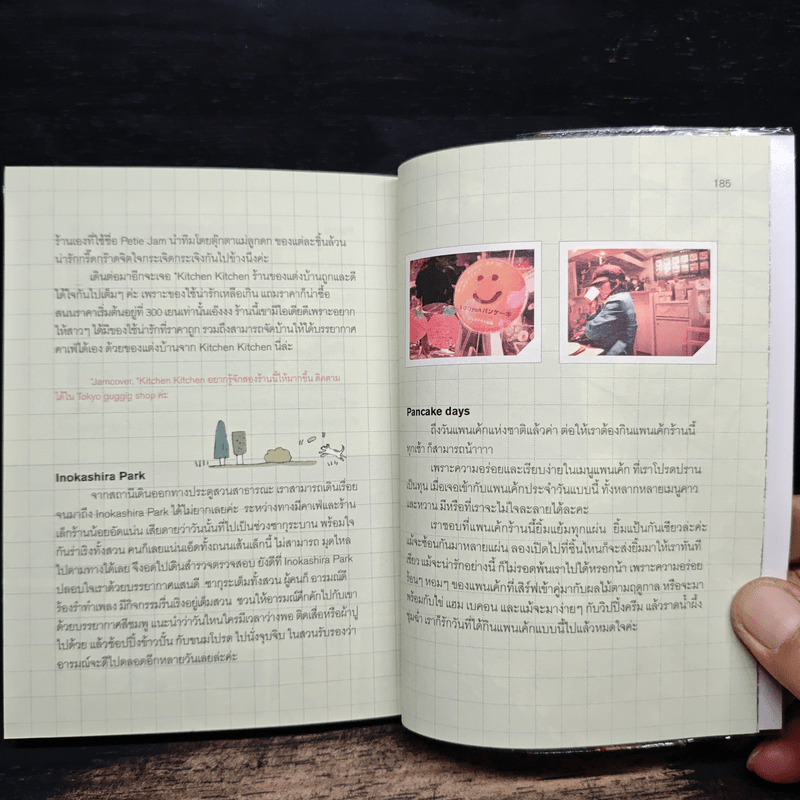 ร้านเองที่ใช้ชื่อ Petie Jam นำทีมโดยตุ๊กตาแม่ลูกดก ของแต่ละชิ้นล้วน
น่ารักกรี๊ดกร๊าดจิตใจกระเจิดกระเจิงกันไปข้างนึงค่ะ
เดินต่อมาอีกจะเจอ *Kitchen Kitchen ร้านของแต่งบ้านถูกและดี
ได้ใจกันไปเต็มๆ ค่ะ เพราะของใช้น่ารักเหลือเกิน แถมราคาก็น่าซื้อ
สนนราคาเริ่มต้นอยู่ที่ 300 เยนเท่านั้นเอ๊งงง ร้านนี้เขามีไอเดียดีเพราะอยาก
ให้สาวๆ ได้มีของใช้น่ารักที่ราคาถูก รวมถึงสามารถจัดบ้านให้ได้บรรยากาศ
คาเฟ่ได้เอง ด้วยของแต่งบ้านจาก Kitchen Kitchen นี่ล่ะ
*Jamcover, *Kitchen Kitchen อยากรู้จักสองร้านนี้ให้มากขึ้น ติดตาม
ได้ใน Tokyo guggig shop ค่ะ
Inokashira Park
จากสถานีเดินออกทางประตูสวนสาธารณะ เราสามารถเดินเรื่อย
จนมาถึง Inokashira Park ได้ไม่ยากเลยค่ะ ระหว่างทางมีคาเฟ่และร้าน
เล็กร้านน้อยอัดแน่น เสียดายว่าวันนั้นที่ไปเป็นช่วงซากุระบาน พร้อมใจ
กันร่าเริงทั้งสวน คนก็เลยแน่นเอี๊ดทั้งถนนเส้นเล็กนี้ ไม่สามารถ มุดไหล
ไปตามทางได้เลย จึงอดไปเดินสำรวจตรวจสอบ ยังดีที่ Inokashira Park
ปลอบใจเราด้วยบรรยากาศแสนดี ซากุระเต็มทั้งสวน ผู้คนก็ อารมณ์ดี
ร้องรำทำเพลง มีกิจกรรมรื่นเริงอยู่เต็มสวน ชวนให้อารมณ์คึกคักไปกับเขา
ด้วยบรรยากาศสีชมพู แนะนำว่าวันไหนใครมีเวลาว่างพอ ติดเสื่อหรือผ้าปู
ไปด้วย แล้วช้อปปิ้งข้าวปั้น กับขนมโปรด ไปนั่งจุบจิบ ในสวนรับรองว่า
อารมณ์จะดีไปตลอดอีกหลายวันเลยล่ะค่ะ
185
Pancake days
ถึงวันแพนเค้กแห่งชาติแล้วค่า ต่อให้เราต้องกินแพนเค้กร้านนี้
ทุกเช้า ก็สามารถน้าาาา
เพราะความอร่อยและเรียบง่ายในเมนูแพนเค้ก ที่เราโปรดปราน
เป็นทุน เมื่อเจอเข้ากับแพนเค้กประจำวันแบบนี้ ทั้งหลากหลายเมนูคาว
และหวาน มีหรือที่เราจะไม่ใจละลายได้ละค่ะ
เราชอบที่แพนเค้กร้านนี้ยิ้มแย้มทุกแผ่น ยิ้มแป้นกันเชียวล่ะค่ะ
แม้จะซ้อนกันมาหลายแผ่น ลองเปิดไปที่ชิ้นไหนก็จะส่งยิ้มมาให้เราทันที
เชียว แม้จะน่ารักอย่างนี้ ก็ไม่รอดพ้นเราไปได้หรอกน้า เพราะความอร่อย
ร้อนๆ หอมๆ ของแพนเค้กที่เสิร์ฟเข้าคู่มากับผลไม้ตามฤดูกาล หรือจะมา
พร้อมกับไข่ แฮม เบคอน และแม้จะมาง่ายๆ กับวิปปิ้งครีม แล้วราดน้ำผึ้ง
ชุ่มฉ่ำ เราก็รักวันที่ได้กินแพนเค้กแบบนี้ไปแล้วหมดใจค่ะ